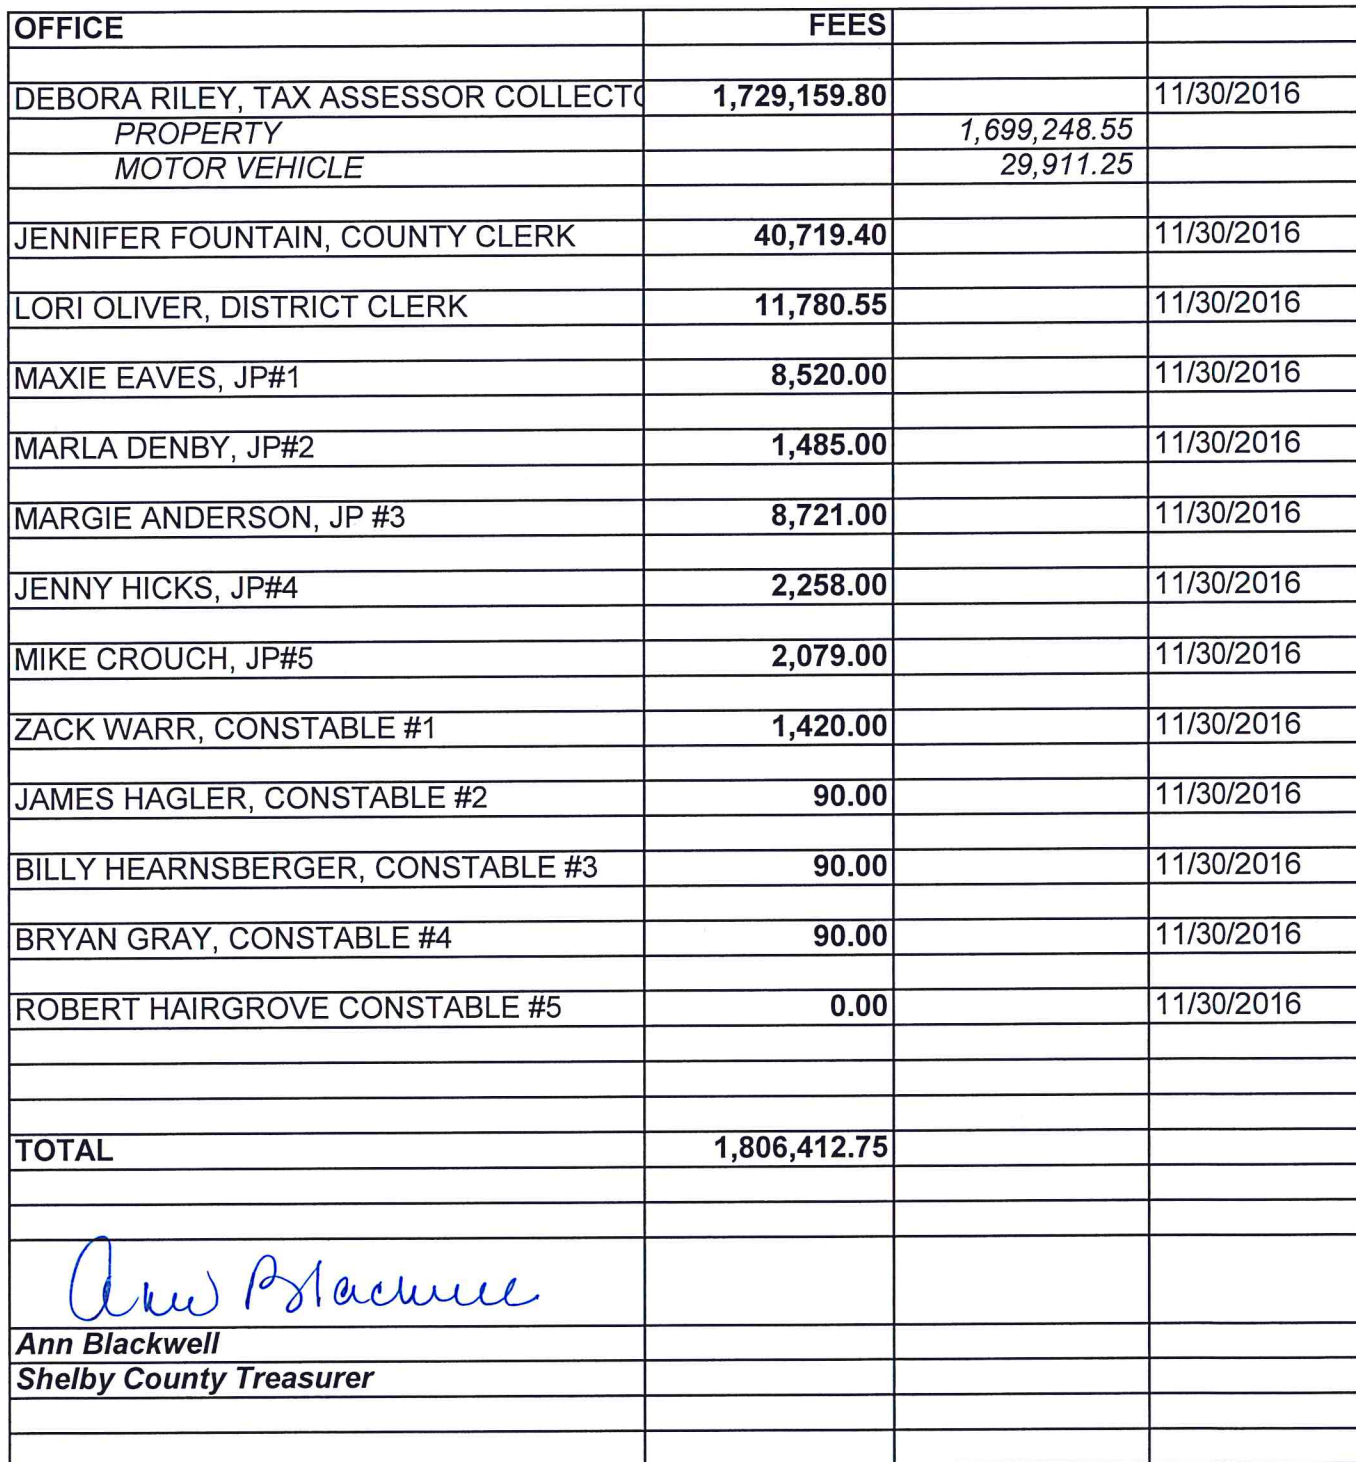 OFFICE FEES
DEBORA RILEY, TAX ASSESSOR COLLECTO 1,729,159.80 11/30/2016
PROPERTY 1,699,248.55
MOTOR VEHICLE 29,911.25
JENNIFER FOUNTAIN, COUNTY CLERK 40,719.40 11/30/2016
LORI OLIVER, DISTRICT CLERK 11,780.55 11/30/2016
MAXIE EAVES, JP#1 8,520.00 11/30/2016
MARLA DENBY, JP#2 1,485.00 11/30/2016
MARGIE ANDERSON, JP #3 8,721.00 11/30/2016
JENNY HICKS, JP#4 2,258.00 11/30/2016
MIKE CROUCH, JP#5 2,079.00 11/30/2016
ZACK WARR, CONSTABLE #1 1,420.00 11/30/2016
JAMES HAGLER, CONSTABLE #2 90.00 11/30/2016
BILLY HEARNSBERGER, CONSTABLE #3 90.00 11/30/2016
BRYAN GRAY, CONSTABLE #4 90.00 11/30/2016
ROBERT HAIRGROVE CONSTABLE #5 0.00 11/30/2016
TOTAL 1,806,412.75
Ann Blackwell
Ann Blackwell
Shelby County Treasurer